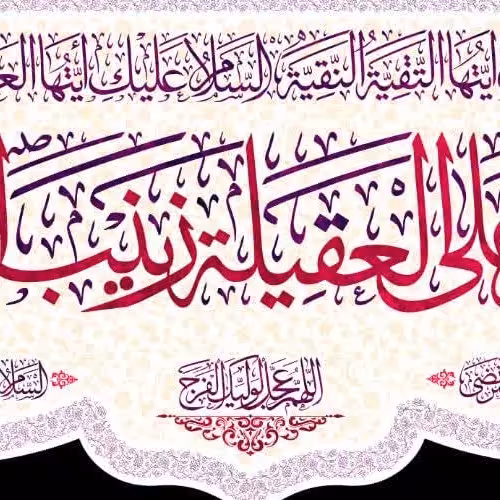 أيتها التقية النقية السلام عليك أيتها
على العقيلة زينب
اللهم عجل لوليك الفرج
السلام